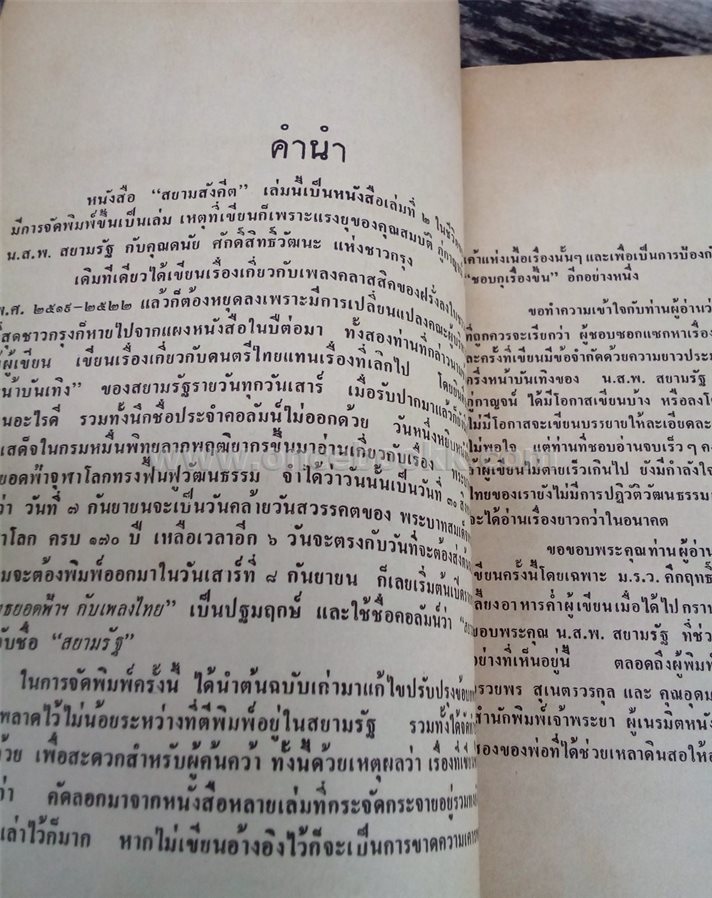 คำนำ
หนังสือ “สยามสังคีต” เล่มนี้เป็นหนังสือเล่มที่ ๒ ในชีวิต
มีการจัดพิมพ์ขึ้นเป็นเล่ม เหตุที่เขียนก็เพราะแรงยุของคุณสมบัติ ภู่กาญจน์
น.ส.พ. สยามรัฐ กับคุณดนัย ศักดิ์สิทธิ์วัฒนะ แห่งชาวกรุง
เดิมทีเดียวได้เขียนเรื่องเกี่ยวกับเพลงคลาสสิคของฝรั่งลง
พ.ศ. ๒๕๑๙-๒๕๒๒ แล้วก็ต้องหยุดลงเพราะมีการเปลี่ยนแปลงคณะ
ที่สุดชาวกรุงก็หายไปจากแผงหนังสือในปีต่อมา ทั้งสองท่านที่กล่าวนาม
ผู้เขียน เขียนเรื่องเกี่ยวกับดนตรีไทยแทนเรื่องที่เลิกไป โดย
หน้าบันเทิง” ของสยามรัฐรายวันทุกวันเสาร์ เมื่อรับปากมาแล้วก็
นอะไรดี รวมทั้งนึกชื่อประจำคอลัมน์ไม่ออกด้วย วันหนึ่งหยิบ
เสด็จในกรมหมื่นพิทยลาภพฤฒิยากรขึ้นมาอ่านเกี่ยวกับเรื่อง
ยอดฟ้าจุฬาโลกทรงฟื้นฟูวัฒนธรรม จำได้ว่าวันนั้นเป็นวันที่ ๓๐
ว่า วันที่ ๗ กันยายนจะเป็นวันคล้ายวันสวรรคตของ พระบาทสมเด็จ
าโลก ครบ ๑๗๐ ปี เหลือเวลาอีก ๖ วันจะตรงกับวันที่จะต้องส่งต้น
มจะต้องพิมพ์ออกมาในวันเสาร์ที่ ๘ กันยายน ก็เลยเริ่มต้น
ธยอดฟ้าฯ กับเพลงไทย” เป็นปฐมฤกษ์ และใช้ชื่อคอลัมน์ว่า
ับชื่อ “สยามรัฐ”
ในการจัดพิมพ์ครั้งนี้ ได้นำต้นฉบับเก่ามาแก้ไขปรับปรุง
พลาดไว้ไม่น้อยระหว่างที่ตีพิมพ์อยู่ในสยามรัฐ รวมทั้งได้
ด้วย เพื่อสะดวกสำหรับผู้ค้นคว้า ทั้งนี้ด้วยเหตุผลว่า เรื่องที่เขียน
ว่า คัดลอกมาจากหนังสือหลายเล่มที่กระจัดกระจายอยู่รวม
เล่าไว้ก็มาก หากไม่เขียนอ้างอิงไว้ก็จะเป็นการขาดความ
เค้าแห่งเนื้อเรื่องนั้นๆ และเพื่อเป็นการป้องกั
“ชอบกุเรื่องขึ้น” อีกอย่างหนึ่ง
ขอทำความเข้าใจกับท่านผู้อ่านว่
ที่ถูกควรจะเรียกว่า ผู้ชอบซอกแซกหาเรื่อง
และครั้งที่เขียนมีข้อจำกัดด้วยความยาวประม
ครึ่งหน้าบันเทิงของ น.ส.พ. สยามรัฐ
ภู่กาญจน์ ได้มีโอกาสเขียนบ้าง หรือลงโ
ไม่มีโอกาสจะเขียนบรรยายให้ละเอียด
ไม่พอใจ แต่ท่านที่ชอบอ่านจบเร็ว ๆ
ถ้าผู้เขียนไม่ตายเร็วเกินไป ยังมีกำลังใจ
ไทยของเรายังไม่มีการปฏิวัติวัฒนธรรม
จะได้อ่านเรื่องยาวกว่าในอนาคต
ขอขอบพระคุณท่านผู้อ่าน
เขียนครั้งนี้โดยเฉพาะ ม.ร.ว. คึกฤทธิ์
เลี้ยงอาหารค่ำผู้เขียนเมื่อได้ไปกราบ
ขอบพระคุณ น.ส.พ. สยามรัฐ ที่ช่ว
อย่างที่เห็นอยู่นี้ ตลอดถึงผู้พิมพ์
รวยพร สุเนตรวรกุล และ คุณอุดม
สำนักพิมพ์เจ้าพระยา ผู้เนรมิตหนัง
ของของพ่อที่ได้ช่วยเหลาดินสอให้